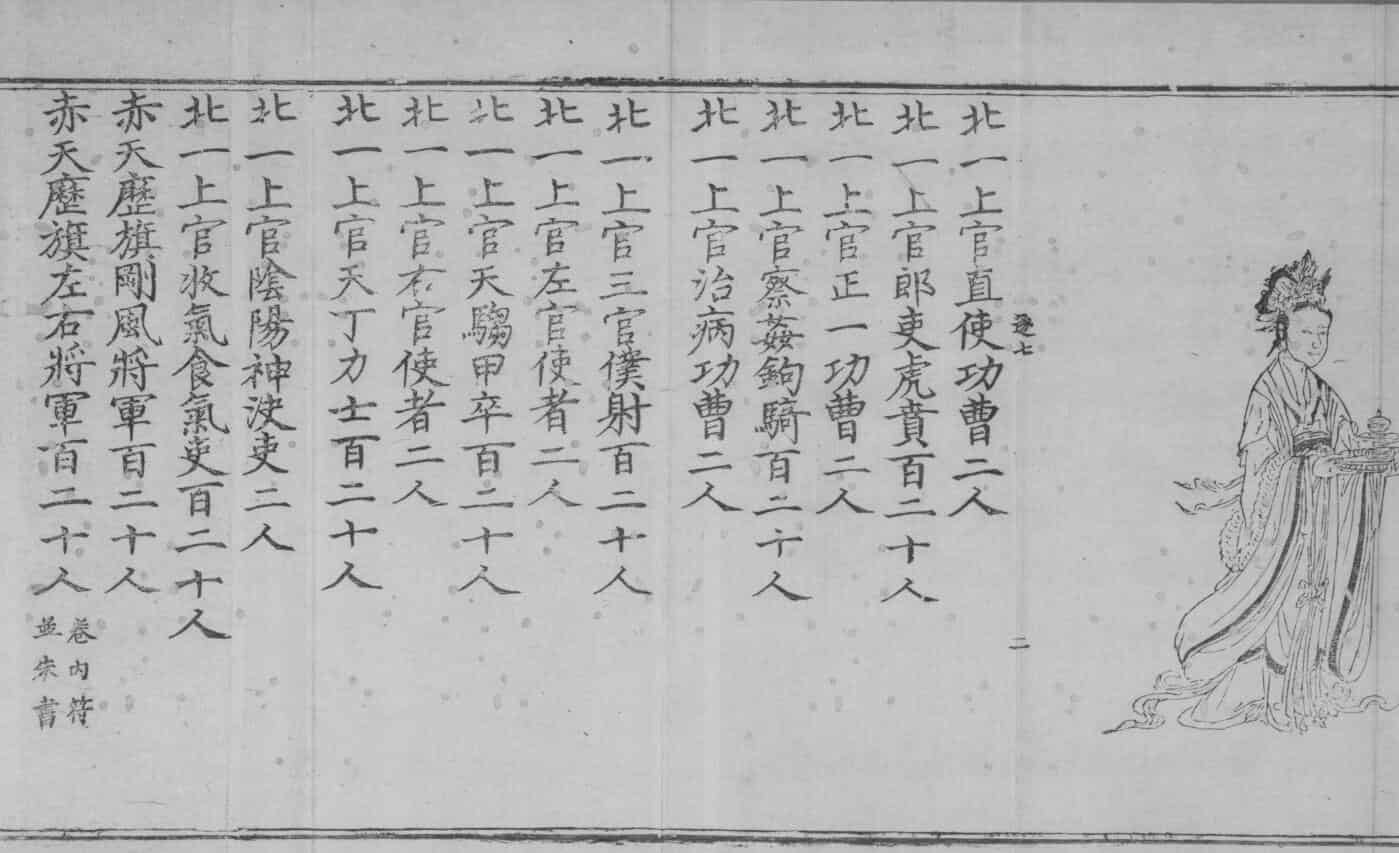 逐七
二
北一上官直使功曹二人
北一上官郎吏虎賁百二十人
北一上官正一功曹二人
北一上官察姦鉤騎百二十人
北一上官治病功曹二人
北一上官三官僕射百二十人
北一上官左官使者二人
北一上官天騶甲卒百二十人
北一上官右官使者二人
北一上官天丁力士百二十人
北一上官陰陽神決吏二人
北一上官收氣食氣吏百二十人
赤天歷旗剛風將軍百二十人
赤天歷旗左右將軍百二十人
卷内符
並朱書